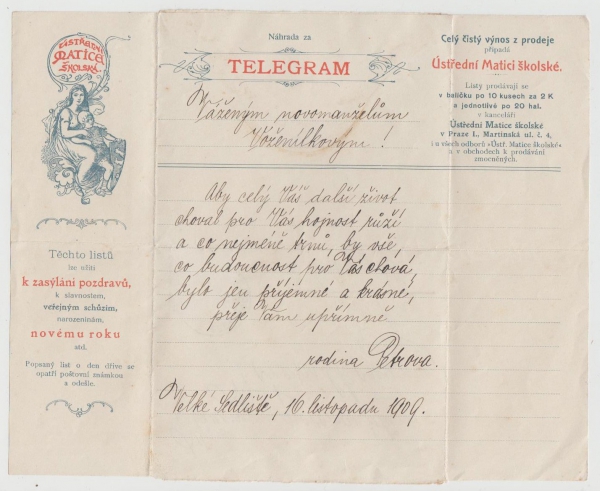 ÚSTŘEDNÍ
MATICE
ŠKOLSKÁ
Těchto listů
lze užíti
k zasýlání pozdravů,
k slavnostem,
veřejným schůzím,
narozeninám,
novému roku
atd.
Popsaný list o den dříve se
opatří poštovní známkou
a odešle.
Náhrada za
TELEGRAM
Váženým novomanželům
Voženílkovým!
Aby celý Váš další život
choval pro Vás hojnost růží
a co nejméně trnů, by vše,
co budoucnost pro Vás chová,
bylo jen příjemné a krásné,
přeje Vám upřímně
rodina Petrova.
Velké Sedliště, 16. listopadu 1909.
Celý čistý výnos z prodeje
připadá
Ústřední Matici školské.
Listy prodávají se
v balíčku po 10 kusech za 2 K
a jednotlivě po 20 hal.
v kanceláři
Ústřední Matice školské
v Praze I., Martinská ul. č. 4,
i u všech odborů »Ústř. Matice školské«
a v obchodech k prodávání
zmocněných.